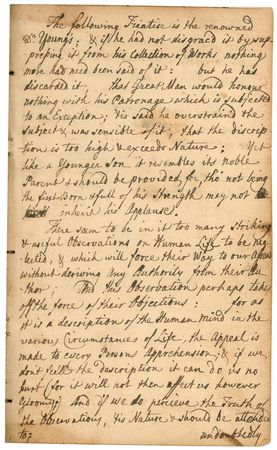 The following Treatise is the renowned
Dr Youngs, & if he had not disgraced it by sup
pressing it from his Collection of Works, nothing
more had need been said of it: but he has
discarded it, that Great Man would honour
nothing with his Patronage which is subjected
to an Exception; tis said he overstraind the
Subject & was sensible of it; that the discrip
tion is too high & exceeds Nature; Yet
like a Younger Son it resembles its noble
Parent & should be provided for, tho' not being
the first Born & full of his Strength may not
inherit his Applause.
There seem to be in it too many Striking
& useful Observations on Human Life to be neg
lected, & which will force their Way to our
without deriving any Authority from their Au
thor; And this Observation perhaps takes
off the force of their Objections: for as
it is a description of the Human Mind in the
various Circumstances of Life, the Appeal is
made to every Persons Apprehension; & if we
don't feel the description it can do us no
hurt (for it will not then affect us however
Gloomy) and if we do percieve the Truth of
the Observations, 'tis Nature & should be attended
to; undoubtedly